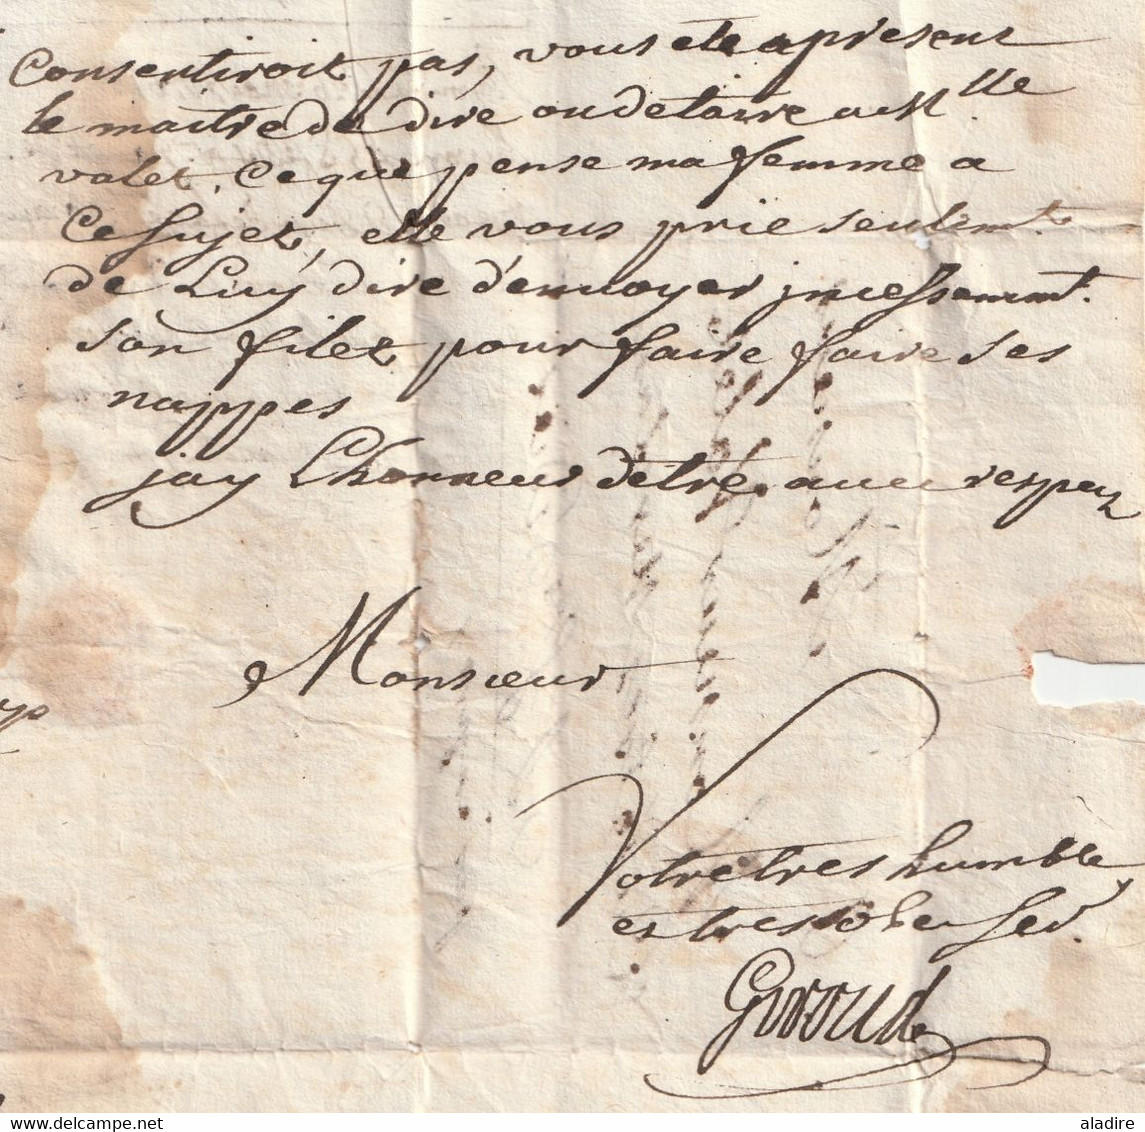 Consentiroit pas, vous ete apresent
le maitre de dire ou detaire a Mlle
valet, Ce que pense ma femme a
Ce Sujet, elle vous prie seulemt.
de Luy dire d'envoyer jncessamt.
son filet pour faire faire ses
nappes
jay Lhonneur detre avec respect
Monsieur
Votre tres humble
et tres obe Ser.
Giroud
aladire